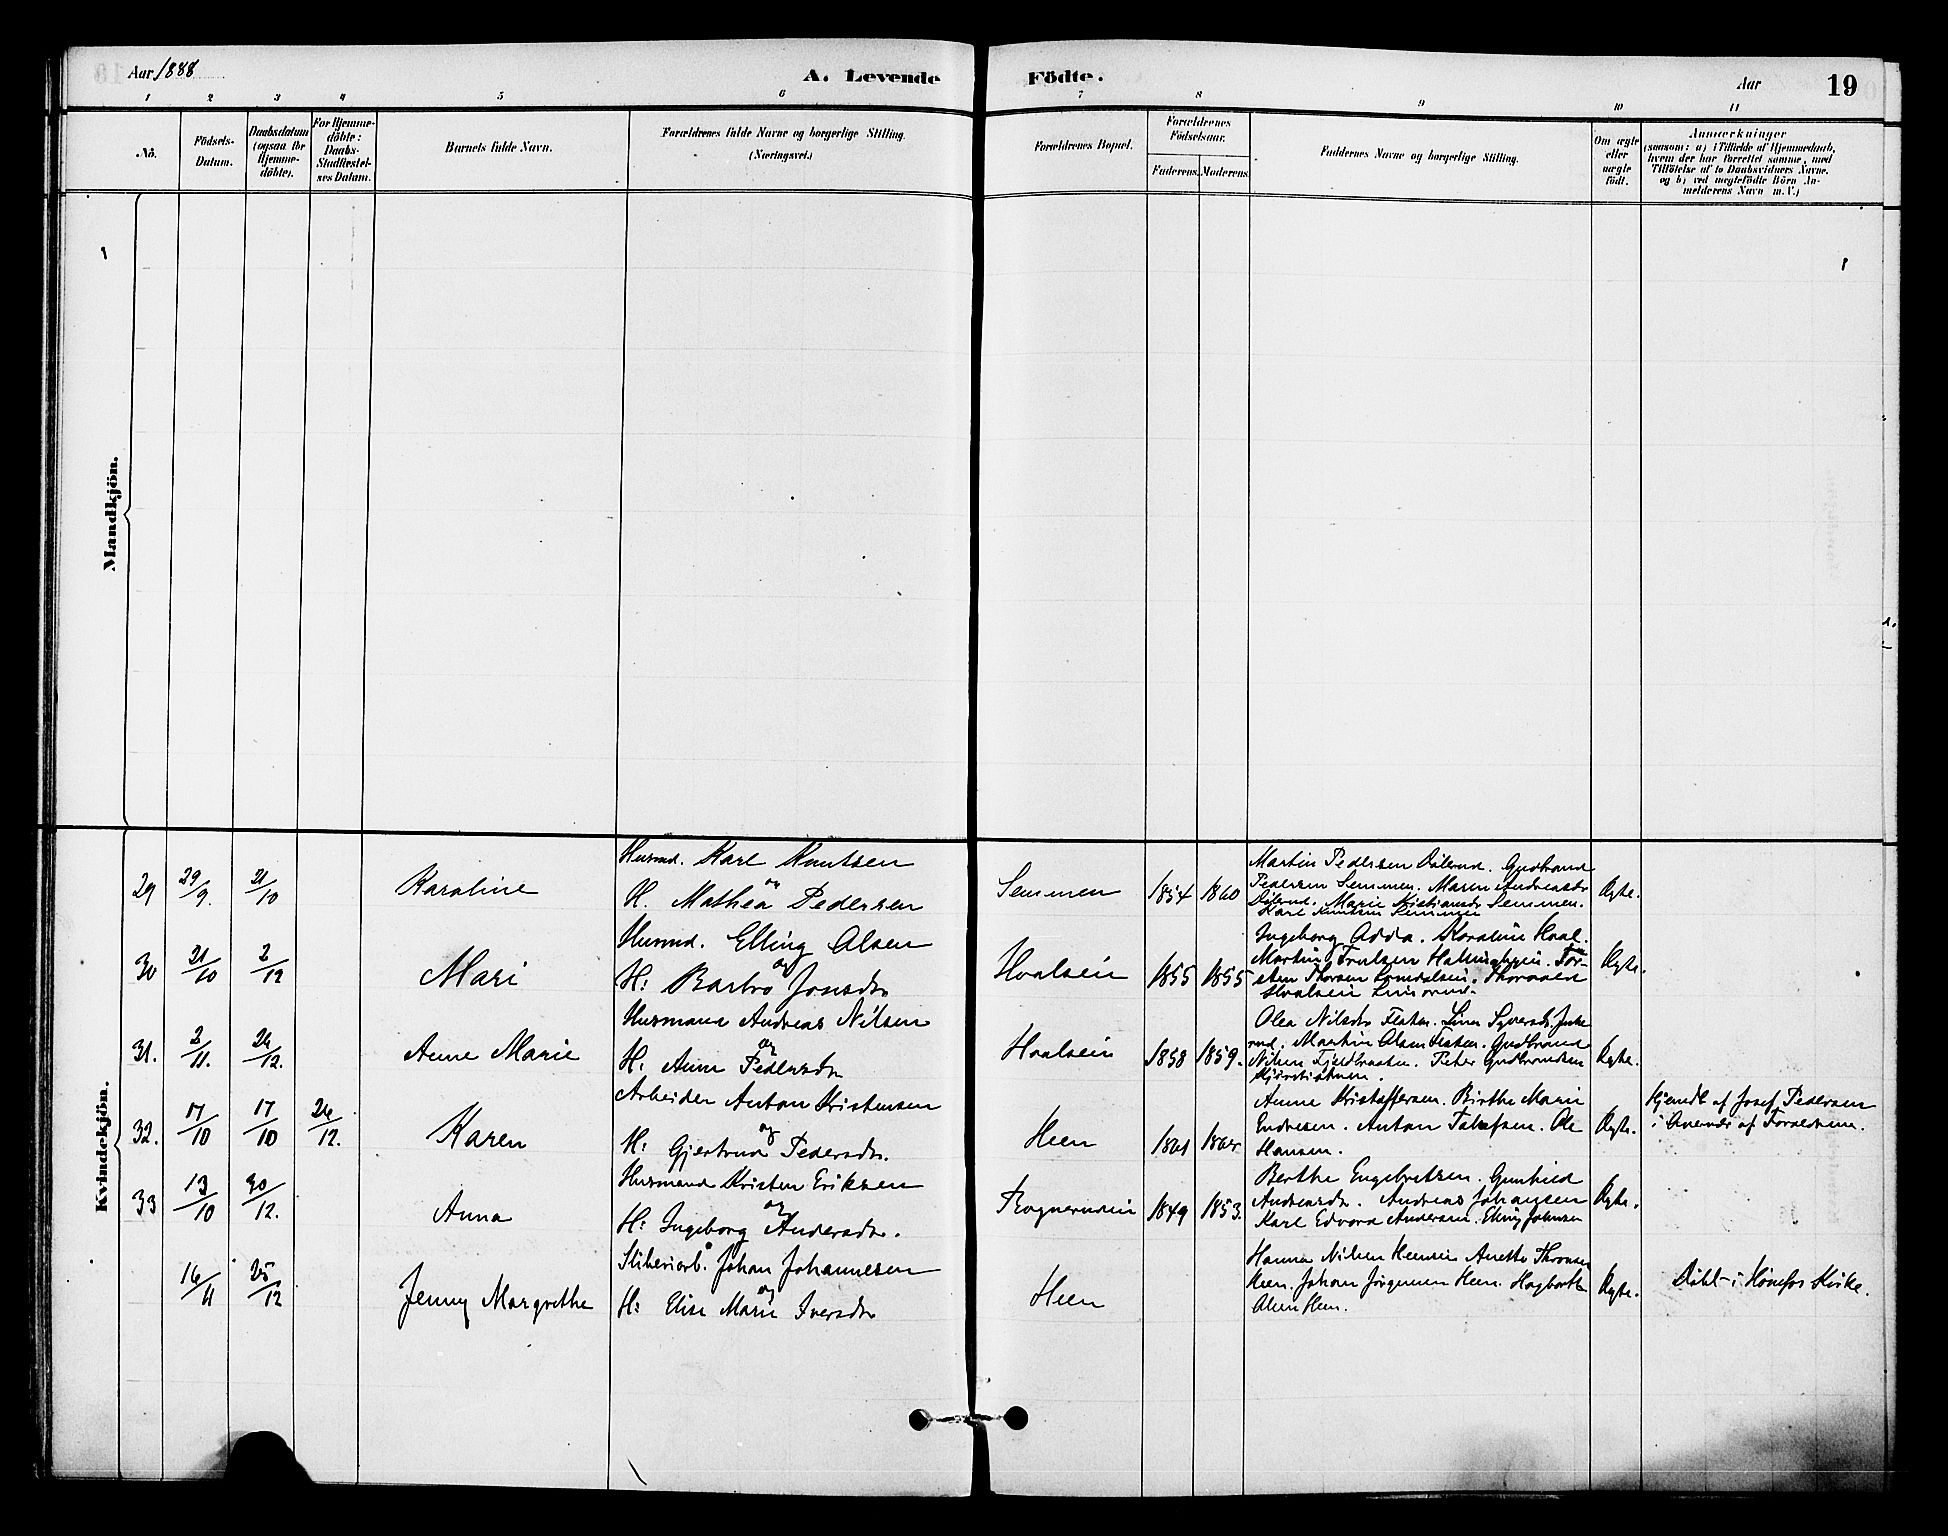 Aar 1888
A. Levende Födte.
Aar 19
1 2 3 4 5 6 7 8 9 10 11
No.
Födsels-
Datum.
Daabsdatum
(ogsaa for
Hjemme-
döbte).
For Hjemme-
döbte:
Daabs-
Stadfæstel-
ses Datum.
Barnets fulde Navn.
Forældrenes fulde Navne og borgerlige Stilling.
(Næringsvei.)
Forældrenes Bopæl.
Forældrenes
Födselsaar.
Faderens. Moderens.
Faddernes Navne og borgerlige Stilling.
Om ægte
eller
uægte
födt.
Anmærkninger
(saasom: a) i Tilfælde af Hjemmedaab,
hvem der har forrettet samme, med
Tilföielse af to Daabsvidners Navne.
og b) ved uægtefödte Börn An-
melderens Navn m. V.)
Mandkjön.
Kvindekjön.
29 29/9. 21/10 Karoline
Husmd. Karl Knutsen
og
H. Mathea Pedersen
Semmen 1854 1860
Martin Pedersen Gudbrand
Pedersen Semmen. Maren Andreasdr
Marie Kristiansdr Semmen.
Karl Knutsen Semmen
Ægte.
30 21/10 2/12 Mari
Husmd. Elling Olsen
og
H: Barbro Jonsdr
Hvalsein 1855 1855
Ingeborg Adda. Karoline Hval.
Martin Trulsen
Thorsen Thorvald
Hvalsein
Ægte.
31. 2/11. 26/12. Anne Marie
Husmand Andreas Nilsen
og
H: Anne Pedersdr
Hvalsein 1858 1859.
Olea Nilsdr Flaten. Lina Syversdr
Martin Olsen Flaten. Gudbrand
Nilsen Peter Gudbrandsen
Ægte.
32. 17/10 17/10 26/12. Karen
Arbeider Anton Kristensen
og
H: Gjertrud Pedersdr.
Heen 1861
Anne Kristoffersen. Birthe Marie
Endresen. Anton Ole
Hansen.
Ægte.
Hjemdt af Josef Pedersen
i Nærvær af Forældrene.
33 13/10 30/12. Anna
Husmand Kristen Eriksen
og
H: Ingeborg Andersdr.
Rognerudein 1849 1853.
Berthe Engebretsen. Gunhild
Andreasdr. Andreas Johansen
Karl Edvard Andersen. Elling Johnsen
Ægte.
16/11 25/12 Jenny Margrethe
Sliberiarb. Johan Johannesen
og
H: Elise Marie Iversdr
Heen
Hanna Nilsen Heensein Anette Thronsen
Heen. Johan Jörgensen Heen. Hagbarth
Olsen Heen.
Ægte.
Döbt i Hönefos Kirke.